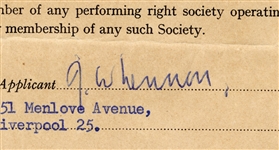 mber of any performing right society operatin
r membership of any such Society.
Applicant J. W. Lennon,
51 Menlove Avenue,
iverpool 25.